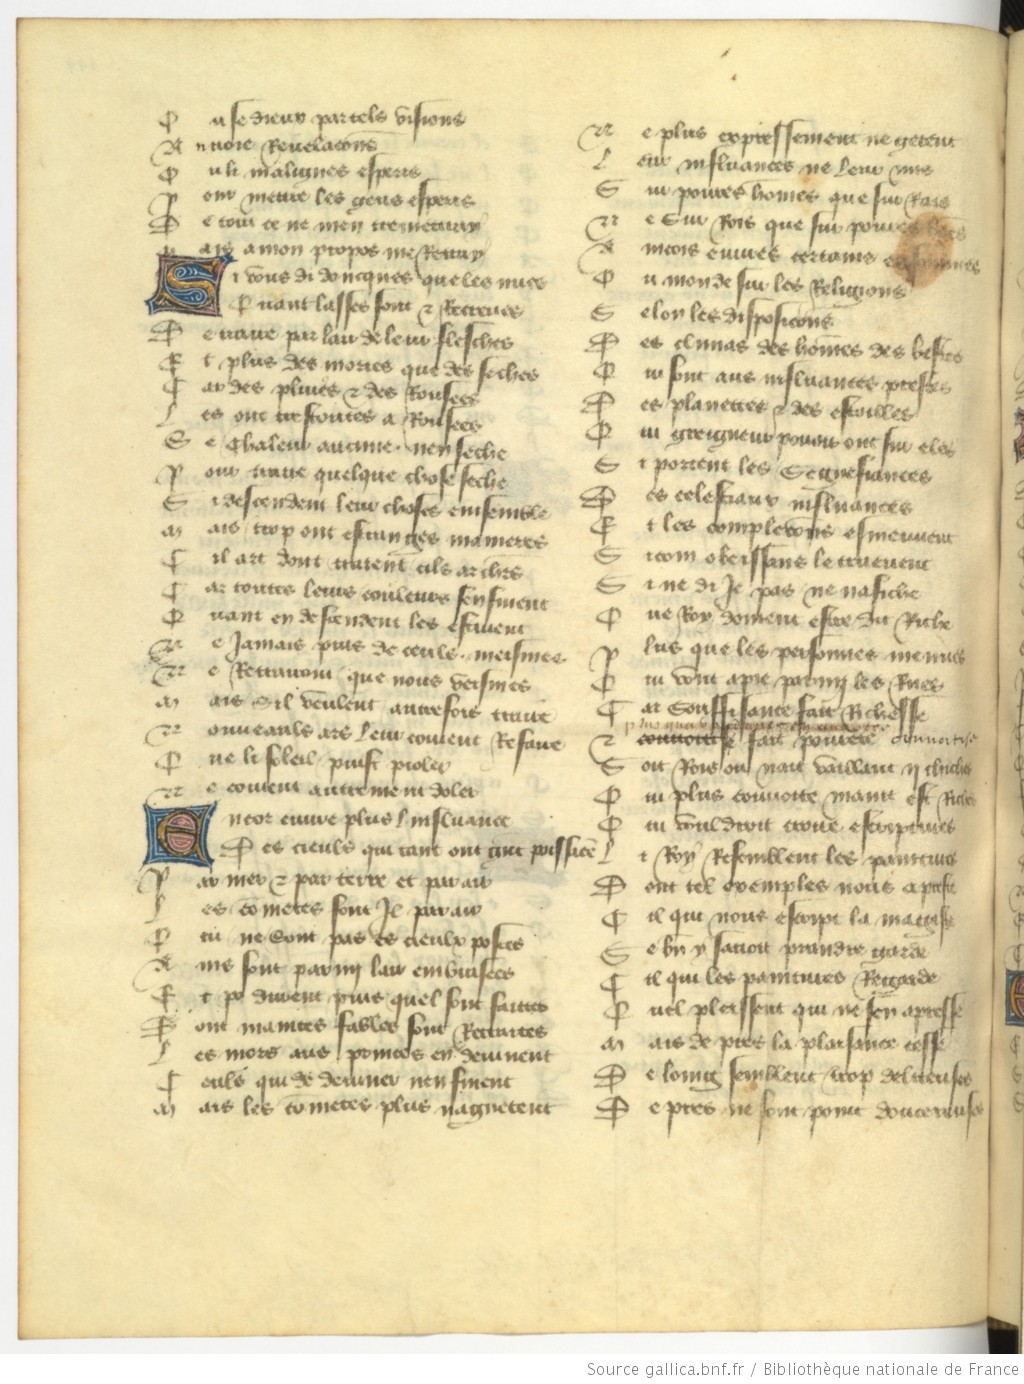 O u se dieux par tels visions
A n uoie Reuelacons
O u li malignes esperis
P our mettre les gens es peris
D e tout ce ne men tremetray
M ais a mon propos me Retray
S i vous di doncques que les nues
Q uant lasses sont ⁊ Recreues
D e traire par lair de leur flesches
E t plus des moites que des seches
C ar des pluies ⁊ des Rousees
L es ont trestoutes a Rousees
S e Chaleur aucune nen seche
P our traire quelque chose seche
S i descendent leur choses ensemble
M ais trop ont estranges manieres
C il art dont traient cils archiers
C ar toutes leurs couleurs sensuient
Q uant en descendent les escuient
N e Jamais puis de ceulx meismes
N e Retrairont que nous veismes
M ais Sil veulent autrefois traire
N ouueauls ars leur conuient Refaire
Q ue li soleil puist pioler
N e conuient autrement doler
E ncor euure plus linfluance
D es cieuls qui tant ont grant poissance
P ar mer ⁊ par terre et par air
L es cometes font Il parair
Q ui ne Sont pas es cieulx posees
A ins sont parmy lair embrasees
E t po durent puis quel sont faites
D ont maintes fables sont Retraites
L es mors aus princes en deuinent
C euls qui de deuiner nen finent
M ais les cometes plus naguetent
N e plus expressement ne getent
L eur influances ne leur rais
S ur poures homes que sur Rais
N e Sur Rois que sur poures homes
A incois euures certains en sommes
O u monde sur les Religions
S elon les disposicons
D es climas des homes des bestes
Q ui sont aus influances prestes
D es planettes ⁊ des estoilles
Q ui greigneur pouoir ont sur elles
S i portent les Segnefiances
D es celestiaux influances
E t les complexions esmeuuent
S icom obeissans le treuuent
S i ne di Je pas ne nafiche
Q ue Roy doiuent estre dit Riche
P lus que les personnes menues
Q ui vont a pie parmy les Rues
C ar Souffisance fait Richesse
⁊ conuoitise fait pourete conuoitise
S oit Rois ou nait vaillant ij chiches
Q ui plus conuoite mains est Riches
Q ui vouldroit croire escriptures
L i Roy Resemblent les paintures
D ont tel exemples nous apreste
C il qui nous escript la mageste
S e bn y sauoit prandre garde
C il qui les paintures Regarde
Q uel plaissent qui ne sen apresse
M ais de pres la plaisance cesse
D e loing semblent trop deliteuses
D e pres ne sont point doucereuses
Source gallica.bnf.fr / Bibliothèque nationale de France